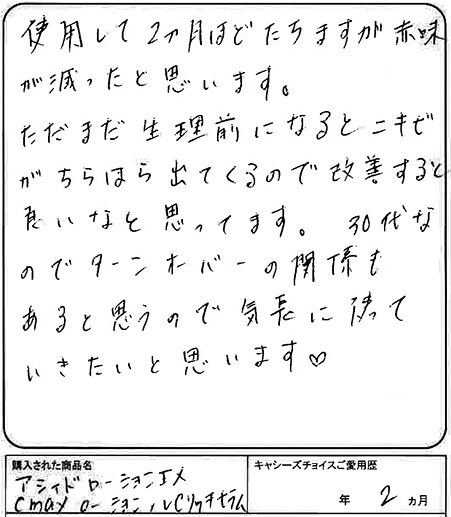 使用して2ヵ月ほどたちますが赤味
が減ったと思います。
ただまだ生理前になるとニキビ
がちらほら出てくるので改善すると
良いなと思ってます。 30代な
のでターンオーバーの関係も
あると思うので気長に使って
いきたいと思います♡
購入された商品名
アシィドローションEX
Cmaxローション, VCリッチセラム
キャシーズチョイスご愛用歴
年 2 ヵ月